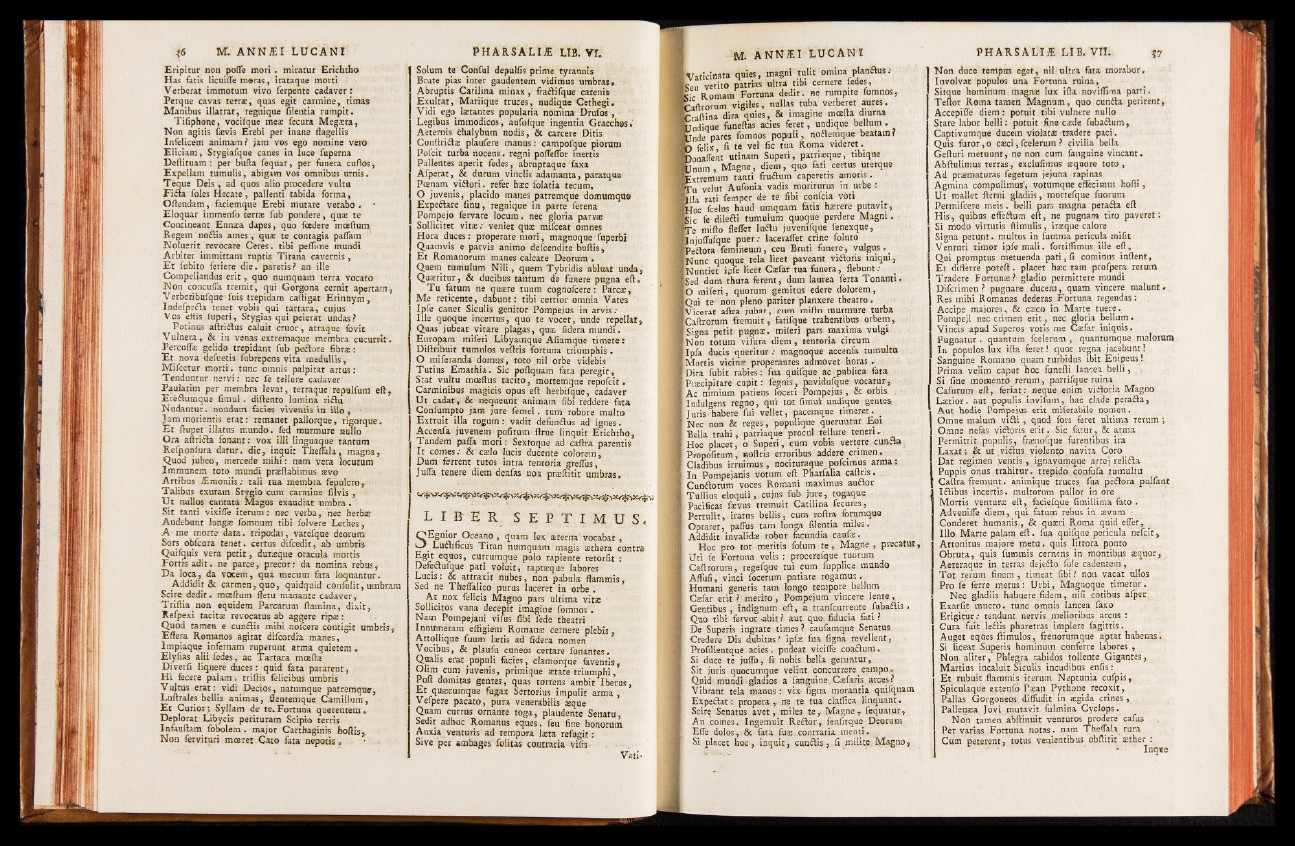 56 M. ANNÆI LUCANI
Eripitur non poſſe mori . miratur Erichtho
Has fatis licuiſſe moras, irataque morti
Verberat immotum vivo ſerpente cadaver :
Perque cavas terræ, quas egit carmine, rimas
Manibus illatrat, regnique ſilentia rumpit.
Tiſiphone, vociſque meæ ſecura Megæra,
Non agitis ſævis Erebi per inane flagellis
Infelicem animam? jam vos ego nomine vero
Eliciam, Stygiaſque canes in luce ſuperna
Deſtituam : per buſta ſequar, per funera cuſtos,
Expellam tumulis, abigam vos omnibus urnis.
Teque Deis, ad quos alio procedere vultu
Ficta ſoles Hecate, pallenti tabida forma,
Oſtendam, faciemque Erebi mutare vetabo .
Eloquar immenſo terræ ſub pondere, quæ te
Contineant Ennæa dapes, quo fœdere mœſtum
Regem noctis ames, quæ te contagia paſſam
Noluerit revocare Ceres. tibi peſſime mundi
Arbiter immittam ruptis Titana cavernis,
Et ſubito feriere die. paretis? an ille
Compellandus erit, quo numquam terra vocato
Non concuſſa tremit, qui Gorgona cernit apertam,
Verberibuſque ſuis trepidam caſtigat Erinnym,
Indeſpecta tenet vobis qui tartara, cujus
Vos eſtis ſuperi, Stygias qui peierat undas?
Potinus aſtrictus caluit cruor, atraque fovit
Vulnera, & in venas extremaque membra cucurrit.
Percuſſæ gelido trepidant ſub pectore fibræ :
Et nova deſuetis ſubrepens vita medullis,
Miſcetur morti. tunc omnis palpitat artus :
Tenduntur nervi: nec ſe tellure cadaver
Paulatim per membra levat, terraque repulſum eſt,
Erectumque ſimul . diſtento lumina rictu
Nudantur. nondum facies viventis in illo,
Jam morientis erat: remanet pallorque, rigorque.
Et ſtupet illatus mundo. ſed murmure nullo
Ora aſtricta ſonant: vox illi linguaque tantum
Reſponſura datur. dic, inquit Theſſala, magna,
Quod jubeo, mercede mihi: nam vera locutum
Immunem toto mundi præſtabimus ævo
Artibus Æmoniis: tali tua membra ſepulcro,
Talibus exuram Stygio cum carmine ſilvis,
Ut nullos cantata Magos exaudiat umbra .
Sit tanti vixiſſe iterum : nec verba, nec herbæ
Audebunt longæ ſomnum tibi ſolvere Lethes,
A me morte data. tripodas, vateſque deorum
Sors obſcura tenet. certus diſcedit, ab umbris
Quiſquis vera petit, duræque oracula mortis
Fortis adit. ne parce, precor: da nomina rebus,
Da loca, da vocem, qua mecum fata loquantur.
Addidit & carmen, quo, quidquid conſulit, umbram
Scire dedit. mœſtum fletu manante cadaver,
Triſtia non equidem Parcarum ſtamina, dixit,
Reſpexi tacitæ revocatus ab aggere ripæ :
Quod tamen e cunctis mihi noſcere contigit umbris,
Effera Romanos agitat diſcordia manes,
Impiaque infernam ruperunt arma quietem .
Elyſias alii ſedes, ac Tartara mœſta
Diverſi liquere duces: quid fata pararent,
Hi fecere palam. triſtis felicibus umbris
Vultus erat: vidi Decios, natumque patremque,
Luſtrales bellis animas, flentemque Camillum,
Et Curios; Syllam de te.Fortuna querentem.
Deplorat Libycis perituram Scipio terris
Infauſtam ſobolem . major Carthaginis hoſtis,
Non ſervituri mœret Cato fata nepotis.
PHARSALIÆ LIB. VI.
Solum te Conſul depulſis prime tyrannis
Brute pias inter gaudentem vidimus umbras.
Abruptis Catilina minax, fractiſque catenis
Exultat, Mariique truces, nudique Cethegi.
Vidi ego lætantes popularia nomina Druſos,
Legibus immodicos, auſoſque ingentia Gracchos.
Aeternis chalybum nodis, & carcere Ditis
Conſtrictæ plauſere manus : campoſque piorum
Poſcit turba nocens. regni poſſeſſor inertis
Pallentes aperit ſedes, abruptaque ſaxa
Aſperat, & durum vinclis adamanta, paratque
Pœnam victori. refer hæc ſolatia tecum,
O juvenis, placido manes patremque domumque
Expectare ſinu, regnique in parte ſerena
Pompejo ſervare locum. nec gloria parvæ
Sollicitet vitæ: veniet quæ miſceat omnes
Hora duces : properate mori, magnoque ſuperbi
Quamvis e parvis animo deſcendite buſtis,
Et Romanorum manes calcate Deorum .
Quem tumulum Nili, quem Tybridis abluat unda,
Quæritur, & ducibus tantum de funere pugna eſt.
Tu fatum ne quære tuum cognoſcere: Parcæ,
Me reticente, dabunt: tibi certior omnia Vates
Ipſe canet Siculis genitor Pompejus in arvis:
Ille quoque incertus, quo te vocet, unde repellat,
Quas jubeat vitare plagas, quæ ſidera mundi.
Europam miſeri Libyamque Aſiamque timete:
Diſtribuit tumulos veſtris fortuna triumphis.
O miſeranda domus, toto nil orbe videbis
Tutius Emathia. Sic poſtquam fata peregit,
Stat vultu mœſtus tacito, mortemque repoſcit.
Carminibus magicis opus eſt herbiſque, cadaver
Ut cadat, & nequeunt animam ſibi reddere fata
Conſumpto jam jure ſemel. tum robore multo
Extruit illa rogum: vadit defunctus ad ignes.
Accenſa juvenem poſitum ſtrue linquit Erichtho,
Tandem paſſa mori: Sextoque ad caſtra parentis
It comes: & cælo lucis ducente colorem,
Dum ferrent tutos intra tentoria greſſus,
Juſſa tenere diem denſas nox præſtitit umbras.
LIBER SEPTIMUS.
SEgnior Oceano, quam lex æterna vocabat,
Luctificus Titan numquam magis æthera contra
Egit equos, currumque polo rapiente retorſit :
Defectuſque pati voluit, raptæque labores
Lucis: & attraxit nubes, non pabula flammis,
Sed ne Theſſalico purus luceret in orbe .
At nox felicis Magno pars ultima vitæ
Sollicitos vana decepit imagine ſomnos .
Nam Pompejani viſus ſibi ſede theatri
Innumeram effigiem Romanæ cernere plebis,
Attollique ſuum lætis ad ſidera nomen
Vocibus, & plauſu cuneos certare ſonantes.
Qualis erat populi facies, clamorque faventis,
Olim cum juvenis, primique ætate triumphi,
Poſt domitas gentes, quas torrens ambit Iberus,
Et quæcumque fugax Sertorius impulit arma,
Veſpere pacato, pura venerabilis æque
Quam currus ornante toga, plaudente Senatu,
Sedit adhuc Romanus eques. ſeu fine bonorum
Anxia venturis ad tempora læta refugit :
Sive per ambages ſolitas contraria viſis
Vati-
M. ANNÆI LUCANI
Vaticinata quies, magni tulit omina planctus :
Seu vetito patrias ultra tibi cernere ſedes,
Sic Romam Fortuna dedit. ne rumpite ſomnos,
Caſtrorum vigiles, nullas tuba verberet aures.
Craſtina dira quies, & imagine mœſta diurna
Undique funeſtas acies feret, undique bellum .
Unde pares ſomnos populi, noctemque beatam?
O felix, ſi te vel ſic tua Roma videret.
Donaſſent utinam Superi, patriæque, tibique
Unum, Magne, diem, quo fati certus uterque
Extremum tanti fructum caperetis amoris .
Tu velut Auſonia vadis moriturus in urbe :
Illa rati ſemper de te ſibi conſcia voti
Hoc ſcelus haud umquam fatis hærere putavit,
Sic ſe dilecti tumulum quoque perdere Magni.
Te miſto fleſſet luctu juveniſque ſenexque,
Injuſſuſque puer: laceraſſet crine ſoluto
Pectora femineum, ceu Bruti funere, vulgus.
Nunc quoque tela licet paveant victoris iniqui,
Nuntiet ipſe licet Cæſar tua funera, flebunt :
Sed dum thura ferent, dum laurea ſerta Tonanti.
O miſeri, quorum gemitus edere dolorem,
Qui te non pleno pariter planxere theatro.
Vicerat aſtra jubar, cum miſto murmure turba
Caſtrorum fremuit, fatiſque trahentibus orbem,
Signa petit pugnæ. miſeri pars maxima vulgi
Non totum viſura diem, tentoria circum
Ipſa ducis queritur: magnoque accenſa tumultu
Mortis vicinæ properantes admovet horas .
Dira ſubit rabies: ſua quiſque ac publica fata
Præcipitare cupit : ſegnis, pavidusque vocatur,
Ac nimium patiens ſoceri Pompejus, & orbis
Indulgens regno, qui tot ſimul undique gentes
Juris habere ſui vellet, pacemque timeret.
Nec non & reges, populique queruntur Eoi
Bella trahi, patriaque procul tellure teneri.
Hoc placet, o Superi, cum vobis vertere cuncta
Propoſitum, noſtris erroribus addere crimen.
Cladibus irruimus, nocituraque poſcimus arma :
In Pompejanis votum eſt Pharſalia caſtris.
Cunctorum voces Romani maximus auctor
Tullius eloquii, cujus ſub jure, togaque
Pacificas ſævus tremuit Catilina ſecures,
Pertulit, iratus bellis, cum roſtra forumque
Optaret, paſſus tam longa ſilentia miles.
Addidit invalidæ robur facundia cauſæ.
Hoc pro tot meritis ſolum te, Magne, precatur,
Uti ſe Fortuna velis : procereſque tuorum
Caſtrorum, regeſque tui cum ſupplice mundo
Affuſi, vinci ſocerum patiare rogamus .
Humani generis tam longo tempore bellum
Cæſar erit? merito, Pompejum vincere lente,
Gentibus, indignum eſt, a tranſcurrente ſubactis.
Quo tibi fervor abit? aut quo fiducia fati?
De Superis ingrate times? cauſamque Senatus
Credere Dis dubitas? ipſæ ſua ſigna revellent,
Proſilientque acies. pudeat viciſſe coactum.
Si duce te juſſo, ſi nobis bella geruntur,
Sit juris quocumque velint concurrere campo.
Quid mundi gladios a ſanguine Cæſaris arces?
Vibrant tela manus : vix ſigna morantia quiſquam
Expectat: propera, ne te tua claſſica linquant.
Scire Senatus avet, miles te, Magne, ſequatur,
An comes. Ingemuit Rector, ſenſitque Deorum
Eſſe dolos, & fata ſuæ contraria menti.
Si placet hoc, inquit, cunctis, ſi milite Magno,
PHARSALIÆ LIB. VII. 57
Non duce tempus eget, nil ultra fata morabor.
Involvat populos una Fortuna ruina,
Sitque hominum magnæ lux iſta noviſſima parti.
Teſtor Roma tamen Magnum, quo cuncta perirent,
Accepiſſe diem : potuit tibi vulnere nullo
Stare labor belli : potuit ſine cæde ſubactum,
Captivumque ducem violatæ tradere paci.
Quis furor,o cæci, ſcelerum? civilia bella
Geſturi metuunt, ne non cum ſanguine vincant.
Abſtulimus terras, excluſimus æquore toto,
Ad præmaturas ſegetum jejuna rapinas
Agmina compulimus, votumque effecimus hoſti,
Ut mallet ſterni gladiis, mortesque ſuorum
Permiſcere meis. belli pars magna peracta eſt
His, quibus effectum eſt, ne pugnam tiro paveret :
Si modo virtutis ſtimulis, iræque calore
Signa petunt. multos in ſumma pericula miſit
Venturi timor ipſe mali. fortiſſimus ille eſt,
Qui promptus metuenda pati, ſi cominus inſtent,
Et differre poteſt. placet hæc tam proſpera rerum
Tradere Fortunæ? gladio permittere mundi
Diſcrimen? pugnare ducem, quam vincere malunt.
Res mihi Romanas dederas Fortuna regendas :
Accipe majores, & cæco in Marte tuere.
Pompeji nec crimen erit, nec gloria bellum.
Vincis apud Superos votis me Cæſar iniquis.
Pugnatur. quantum ſcelerum, quantumque malorum
In populos lux iſta feret! quot regna jacebunt!
Sanguine Romano quam turbidus ibit Enipeus!
Prima velim caput hoc funeſti lancea belli,
Si ſine momento rerum, partiſque ruina
Caſurum eſt, feriat: neque enim victoria Magno
Lætior. aut populis inviſum, hac clade peracta,
Aut hodie Pompejus erit miſerabile nomen.
Omne malum victi, quod ſors feret ultima rerum;
Omne nefas victoris erit. Sic fatur, & arma
Permittit populis, frænoſque furentibus ira
Laxat; & ut victus violento navita Coro
Dat regimen ventis, ignavumque artej relicta
Puppis onus trahitur. trepido confuſa tumultu
Caſtra fremunt. animique truces ſua pectora pulſant
Ictibus incertis. multorum pallor in ore
Mortis venturæ eſt, facieſque ſimillima fato .
Adveniſſe diem, qui fatum rebus in ævum
Conderet humanis, & quæri Roma quid eſſet,
Illo Marte palam eſt. ſua quiſque pericula neſcit,
Attonitus majore metu. quis littora ponto
Obruta, quis ſummis cernens in montibus æquor,
Aeteraque in terras dejecto ſole cadentem,
Tot rerum finem, timeat ſibi? non vacat ullos
Pro ſe ferre metus : Urbi, Magnoque timetur.
Nec gladiis habuere fidem, niſi cotibus aſper
Exarſit mucro. tunc omnis lancea ſaxo
Erigitur: tendunt nervis melioribus arcus :
Cura fuit lectis pharetras implere ſagittis.
Auget eques ſtimulos, frenorumque aptat habenas.
Si liceat Superis hominum conferre labores,
Non aliter, Phlegra rabidos tollente Gigantes,
Martius incaluit Siculis incudibus enſis :
Et rubuit flammis iterum Neptunia cuſpis,
Spiculaque extenſo Pæan Pythone recoxit,
Pallas Gorgoneos diffudit in ægida crines,
Pallenæa Jovi mutavit fulmina Cyclops.
Non tamen abſtinuit venturos prodere caſus
Per varias Fortuna notas. nam Theſſala rura
Cum peterent, totus venientibus obſtitit æther :
Inque